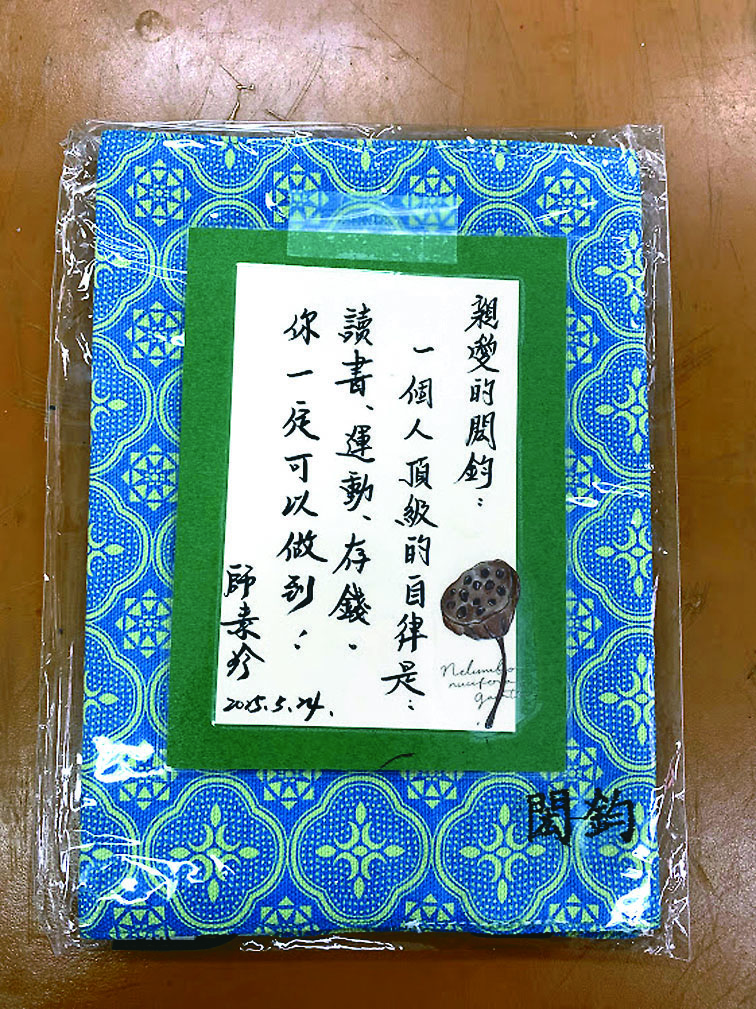 親愛的閎鈞：
一個人頂級的自律是：
讀書、運動、存錢。
你一定可以做到！
師素珍
2025.5.24.
Nelumbo
nucifera
閎鈞